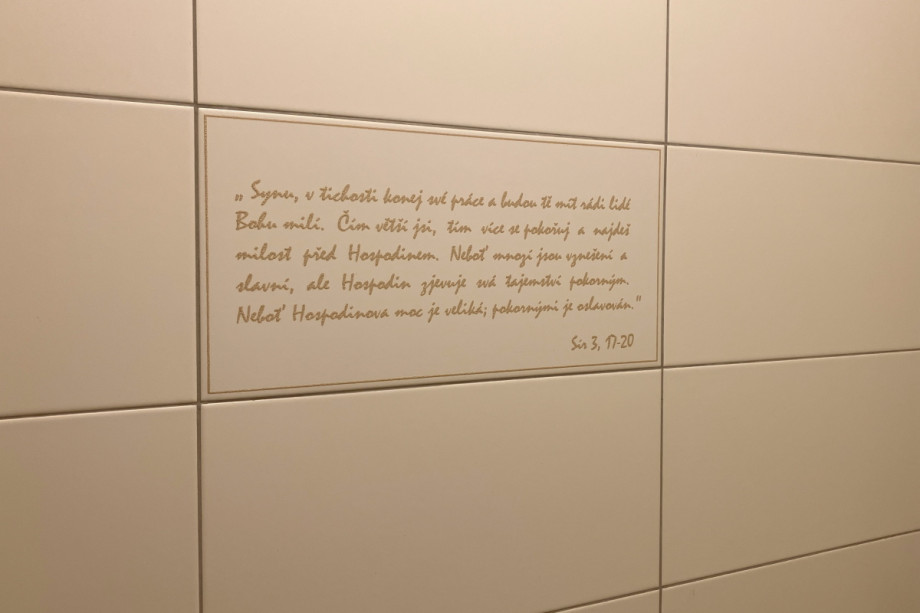 „Synu, v tichosti konej své práce a budou tě mít rádi lidé
Bohu milí. Čím větší jsi, tím více se pokořuj a najdeš
milost před Hospodinem. Neboť mnozí jsou vznešení a
slavní, ale Hospodin zjevuje svá tajemství pokorným.
Neboť Hospodinova moc je veliká; pokornými je oslavován."
Sir 3, 17-20